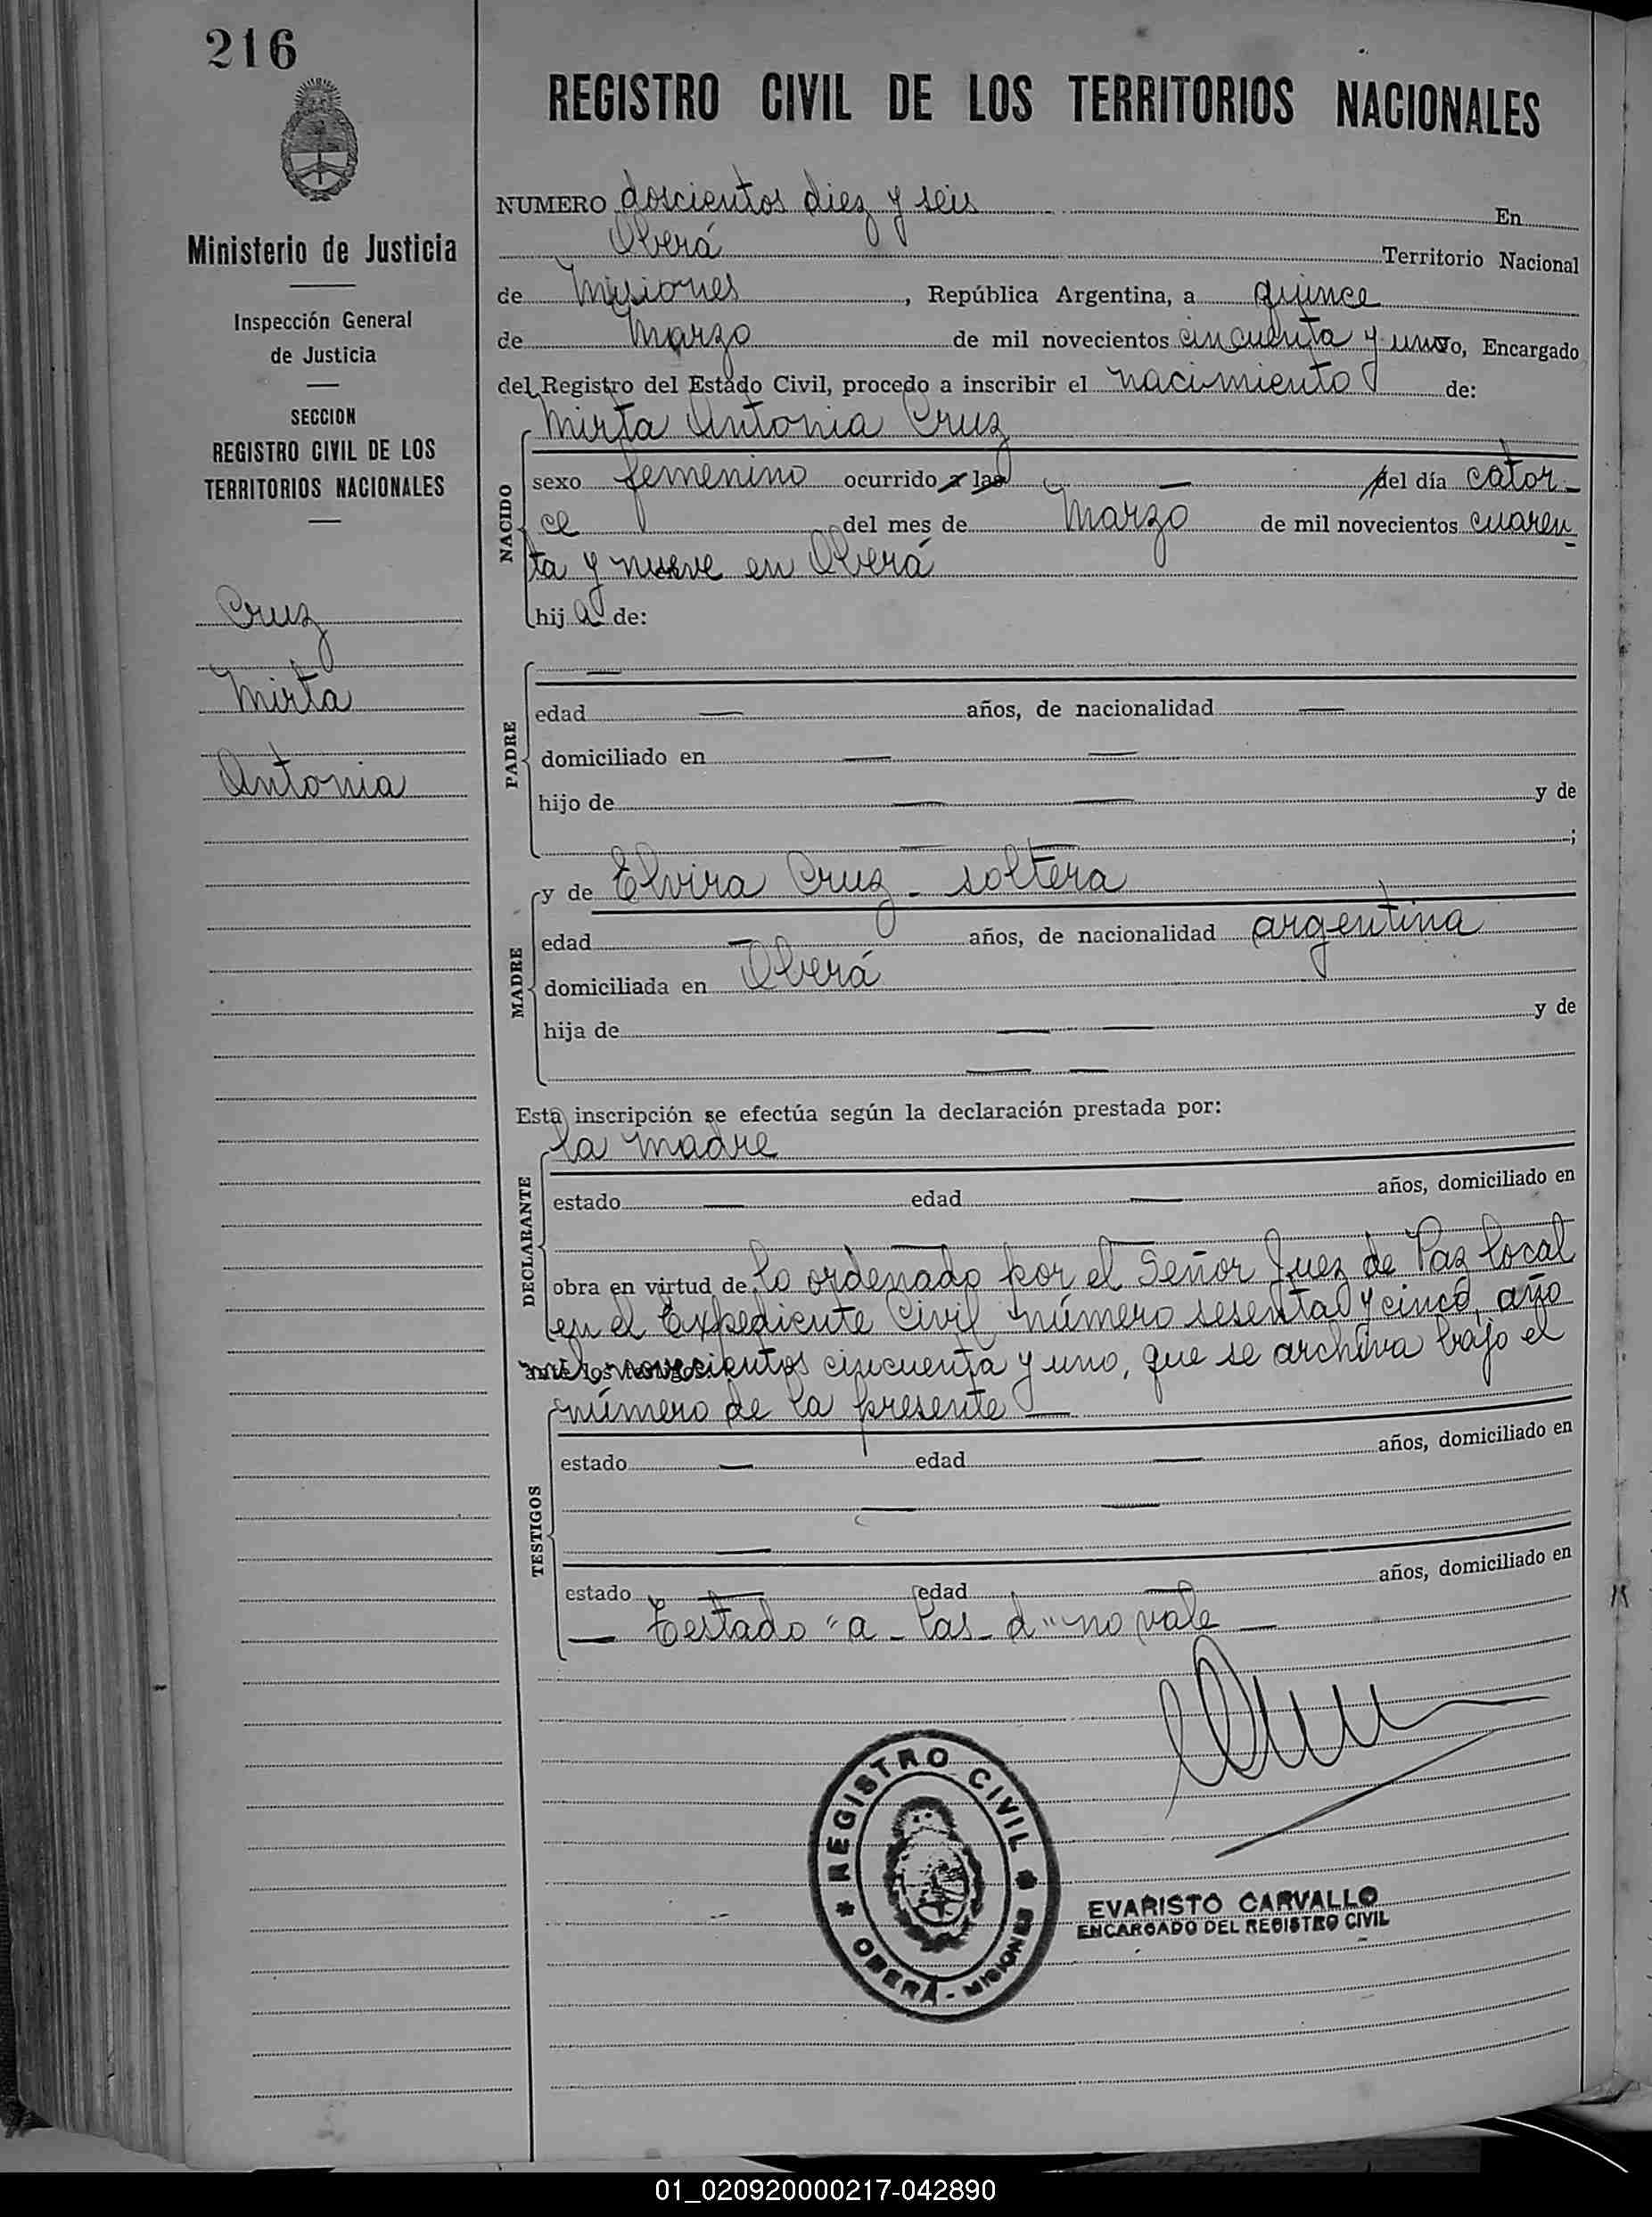 216
Ministerio de Justicia
Inspección General
de Justicia
SECCION
REGISTRO CIVIL DE LOS
TERRITORIOS NACIONALES
Cruz
Mirta
Antonia
REGISTRO CIVIL DE LOS TERRITORIOS NACIONALES
NUMERO doscientos diez y seis En
Oberá Territorio Nacional
de Misiones, República Argentina, a quince
de Marzo de mil novecientos cincuenta y uno, Encargado
del Registro del Estado Civil, procedo a inscribir el nacimiento de:
NACIDO
Mirta Antonia Cruz
sexo femenino ocurrido a las — del día cator-
ce del mes de Marzo de mil novecientos cuaren
ta y nueve en Oberá
hija de:
PADRE
—
edad — años, de nacionalidad —
domiciliado en — —
hijo de — — y de
— — ;
MADRE
y de Elvira Cruz - soltera
edad — años, de nacionalidad argentina
domiciliada en Oberá
hija de — — y de
— —
Esta inscripción se efectúa según la declaración prestada por:
DECLARANTE
la madre
estado — edad — años, domiciliado en
— —
obra en virtud de lo ordenado por el Señor Juez de Paz local
en el Expediente Civil número sesenta y cinco, año
mil novecientos cincuenta y uno, que se archiva bajo el
número de la presente —
TESTIGOS
estado — edad — años, domiciliado en
— —
—
estado — edad — años, domiciliado en
— Testado "a - las - d" no vale —
REGISTRO CIVIL
OBERÁ - MISIONES
EVARISTO CARVALLO
ENCARGADO DEL REGISTRO CIVIL
01_020920000217-042890